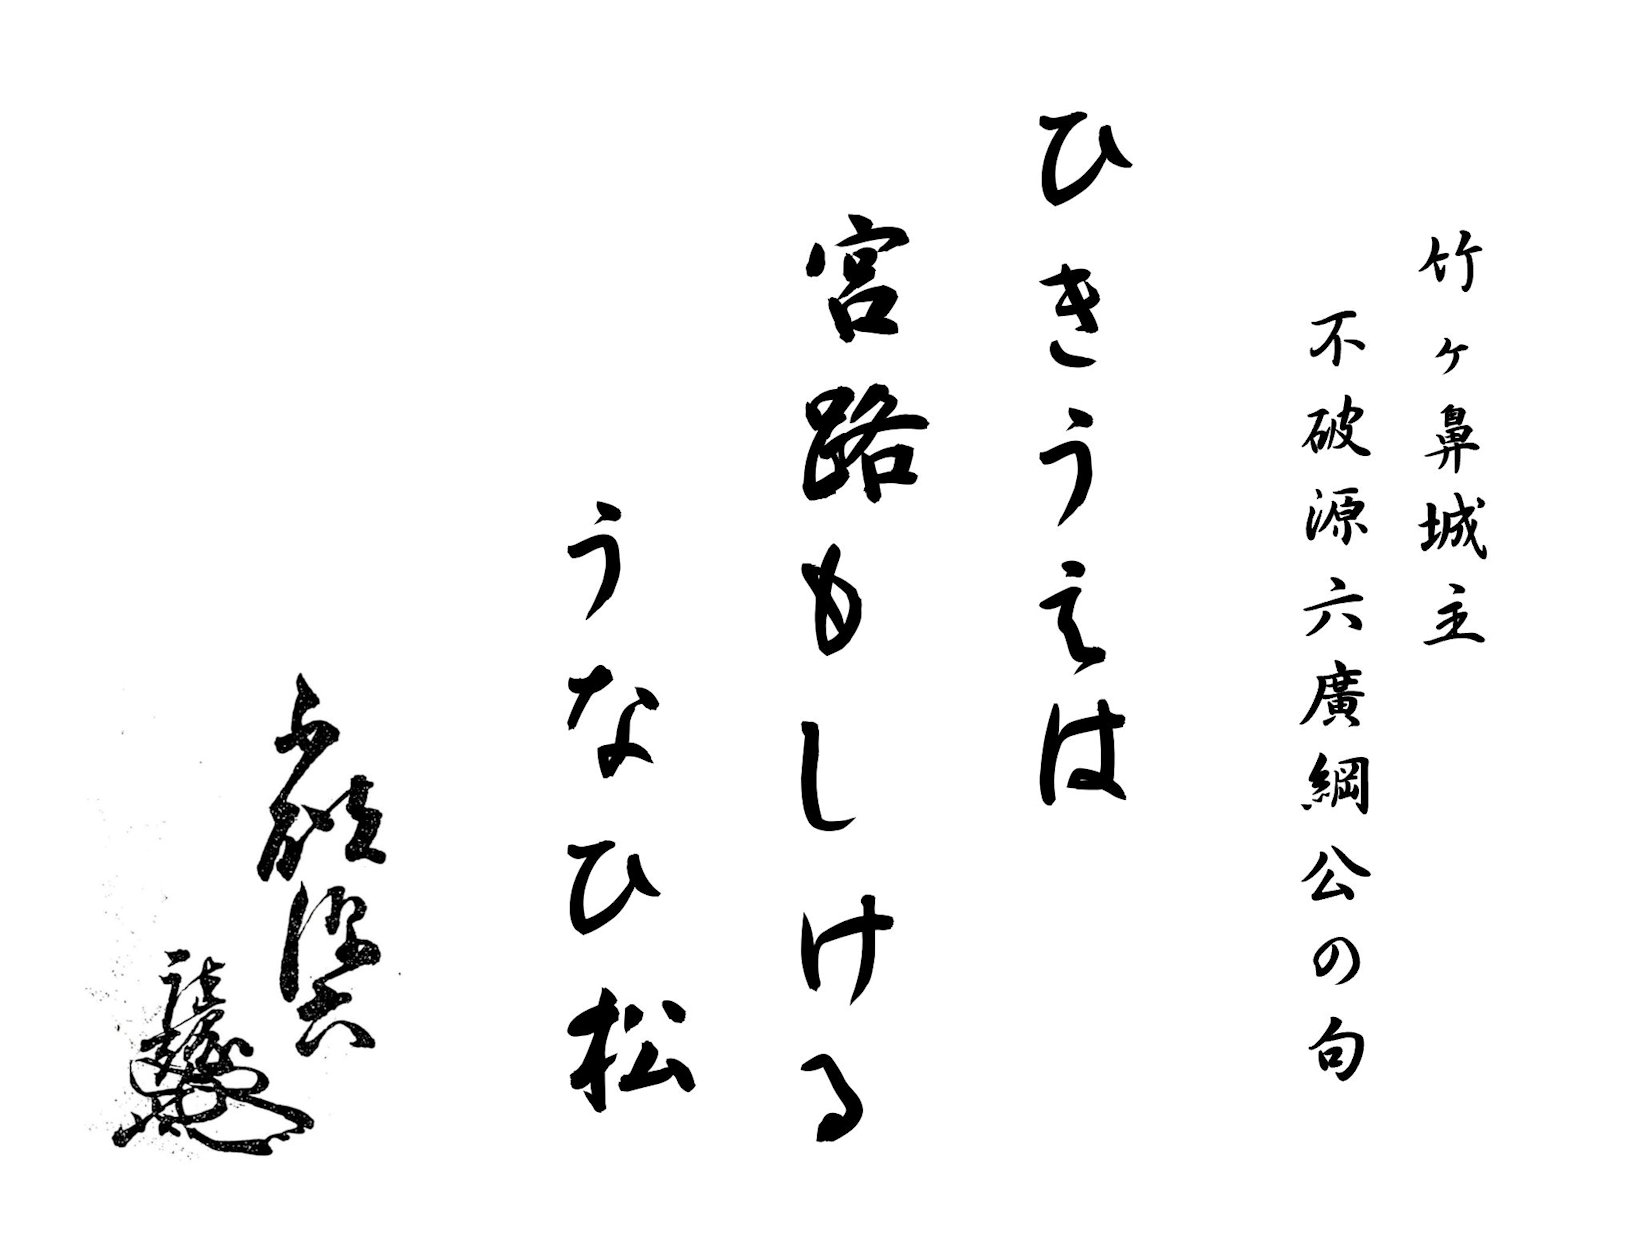 竹ヶ鼻城主
不破源六廣綱公の句
ひきうえは
宮路もしける
うなひ松
不破源六